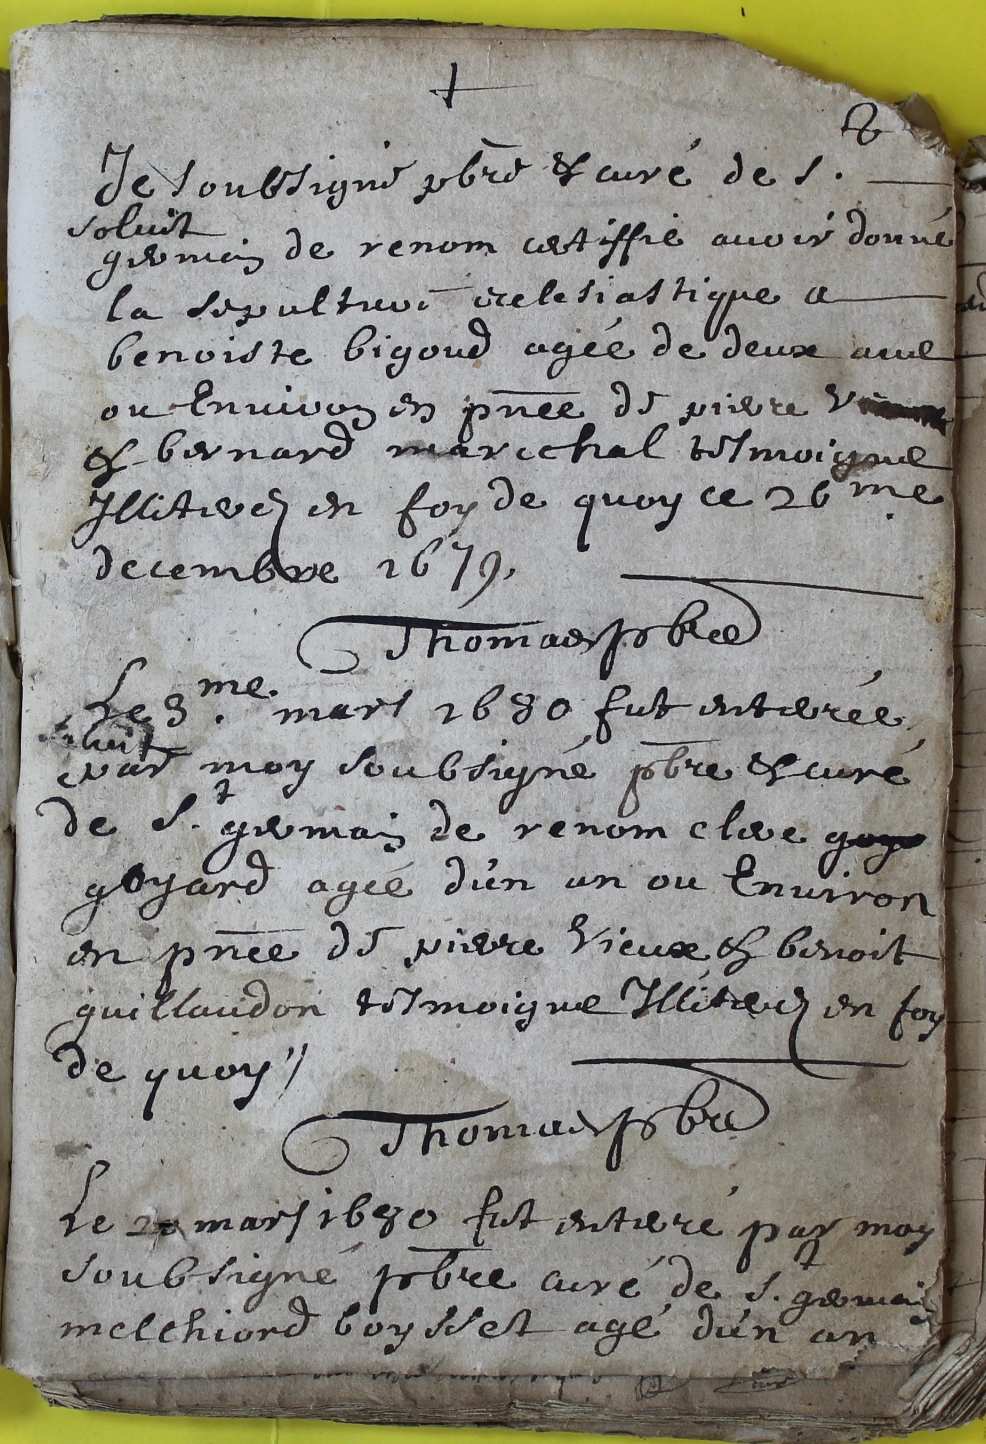 Je soubsigné pbre & curé de S.
soluit
germain de renom certiffie auoir donné
la sepulture eclesiastique a
benoiste bigoud agée de deux ans
ou Enuiron en pnce de pierre
& bernard marechal tesmoigns
Illiteres en foy de quoy ce 26me
decembre 1679.
Thomas pbre
Le 3me mars 1680 fut enterée
soluit
par moy soubsigné pbre & curé
de S.t germain de renom clere
goyard agée d'un an ou Enuiron
en pnce de pierre Vieux & benoit
guillaudon tesmoigns Illiteres en foy
de quoy //
Thomas pbre
Le mars 1680 fut enteré par moy
soubsigné pbre curé de S.t germain
melchiord boysset agé d'un an